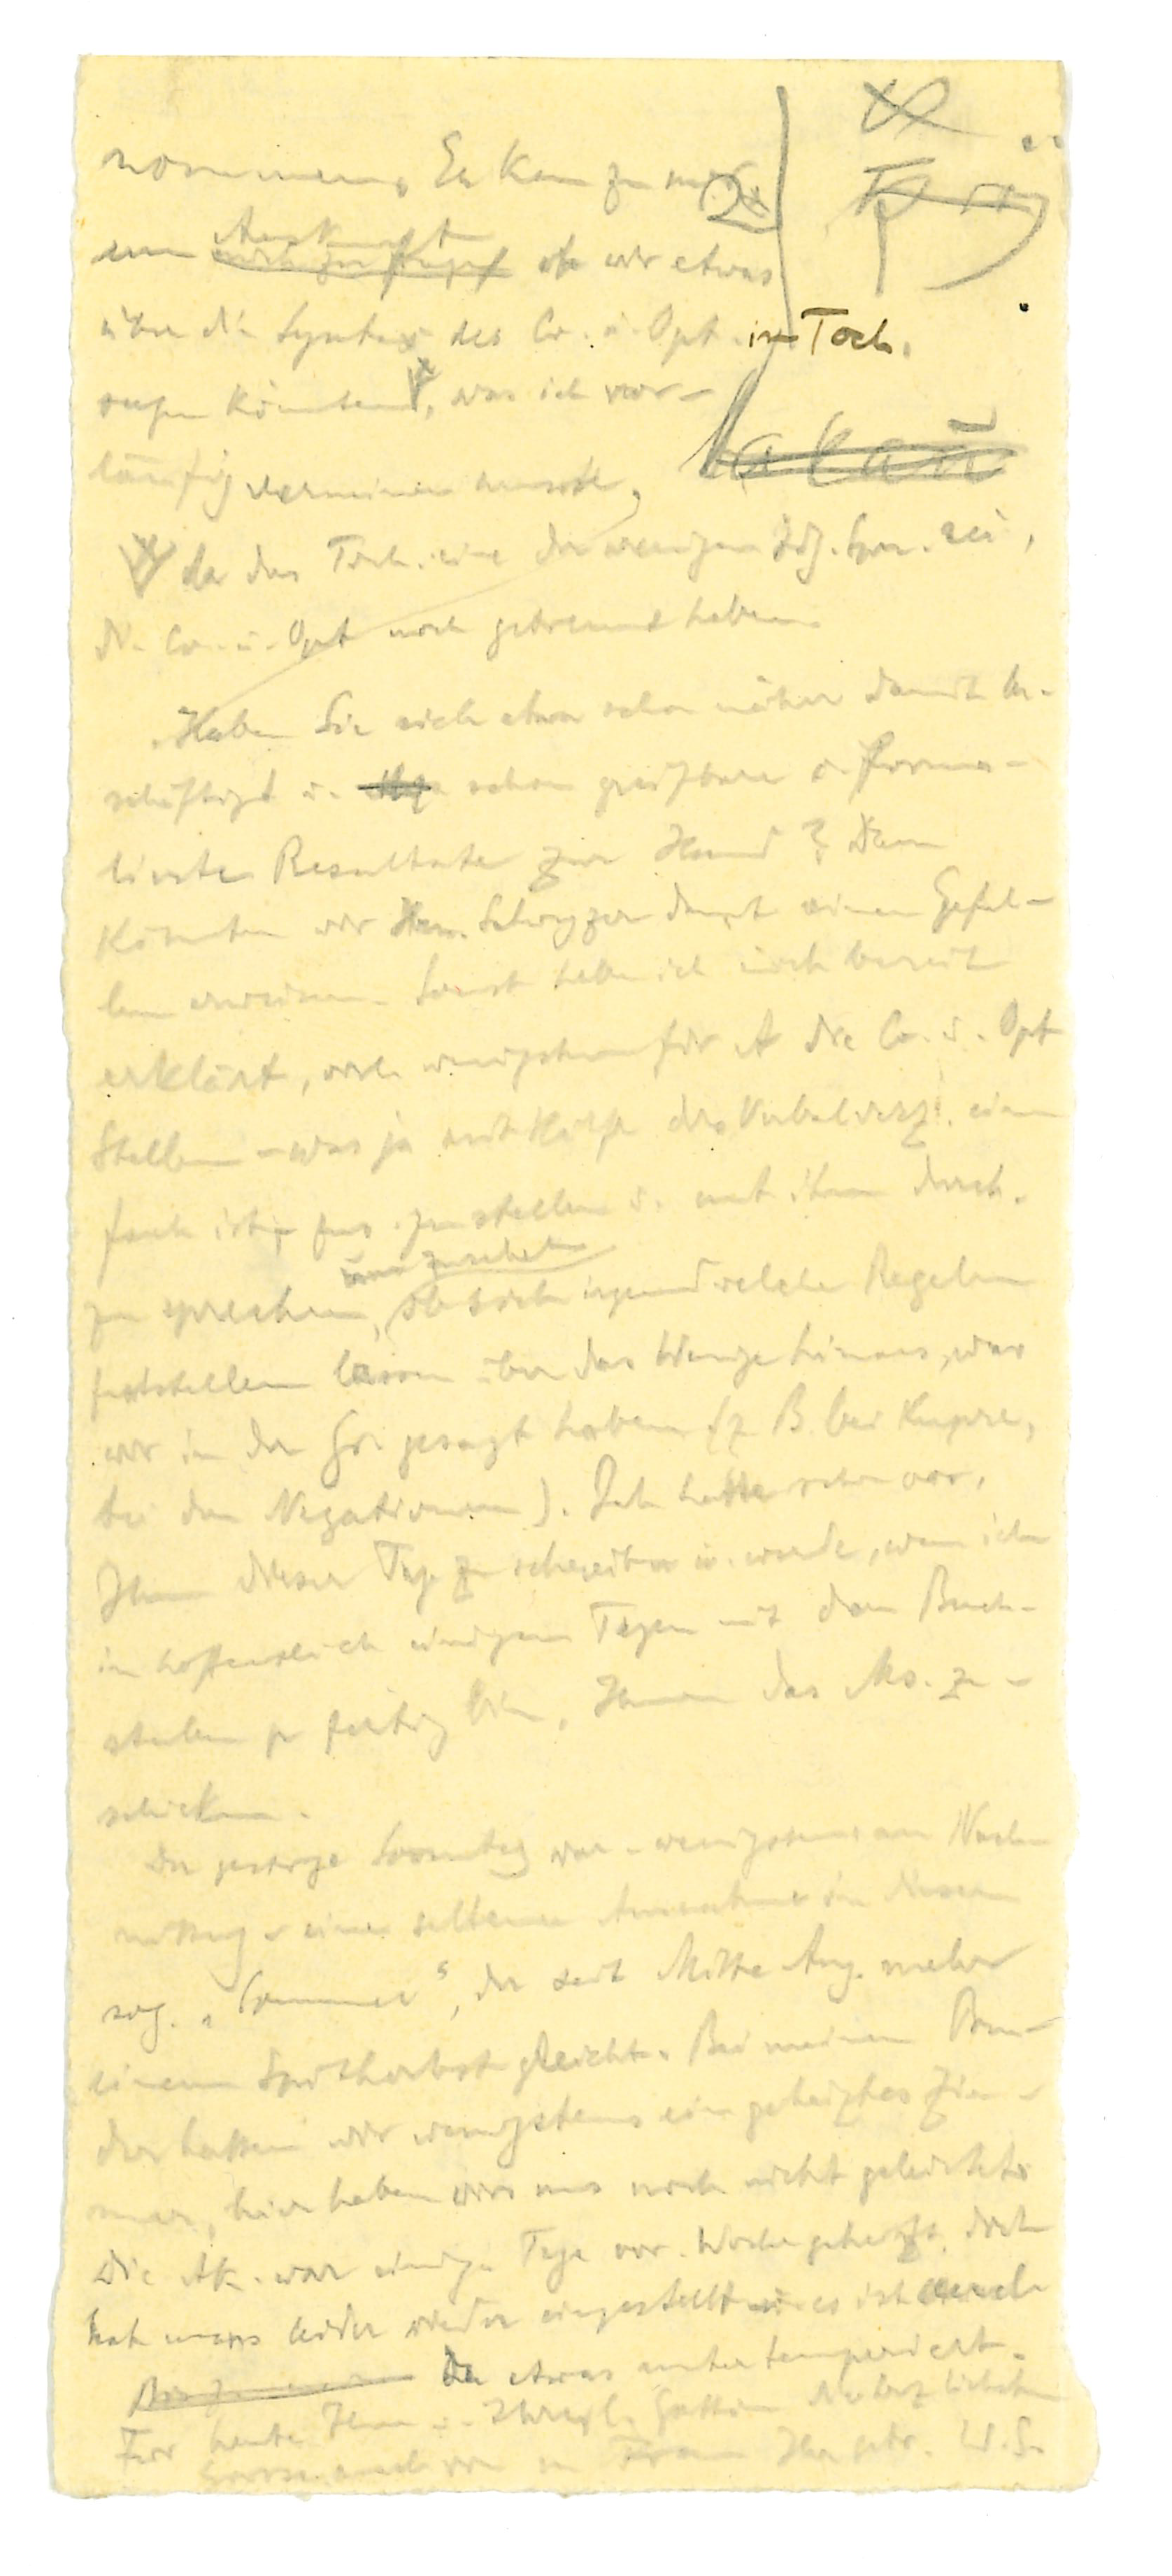 nommen. Er kam zu mir
Auskunft
um ob wir etwas
über die Syntax des Co. u. Opt. im Toch.
sagen könnten, was ich vor-
läufig verneinen musste,
da das Toch. eine der wenigen Idg. Spr. sei,
die Co. u. Opt noch getrennt haben.
Haben Sie sich etwa schon näher damit be-
schäftigt u. schon greifbare u. formu-
lierte Resultate zur Hand? Dann
könnten wir Hrn. Schwyzer damit einen Gefal-
len erweisen. Sonst habe ich mich bereit
erklärt, wenigstens für A die Co. u. Opt
Stellen - was ja mit Hilfe des Verbalverz. ein-
fach ist - zus. zustellen u. mit ihm durch-
zusehen
zu sprechen, ob sich irgendwelche Regeln
feststellen lassen über das Wenige hinaus, was
wir in der Gr. gesagt haben (z B. bei
bei den Negationen). Ich hatte schon vor,
Ihnen dieser Tage zu schreiben u. werde, wenn ich
in hoffentlich einigen Tagen mit dem Buch-
staben p fertig bin, Ihnen das Ms. zu-
schicken.
Der gestrige Sonntag war - wenigstens am Nach-
mittag - eine seltene Ausnahme in diesem
sog. "Sommer", der seit Mitte Aug. mehr
einem Spätherbst gleicht. Bei meinem Bru-
der hatten wir wenigstens ein geheiztes Zim-
mer, hier haben wirs uns noch nicht geleistet.
Die Ak. war einige Tage vor. Woche geheizt, doch
hat mans leider wieder eingestellt u. es ist auch
da etwas untertemperiert.
Für heute Ihnen u. Ihrer l. Gattin die herzlichsten
Grüsse auch von m Frau Ihr getr. W. S.